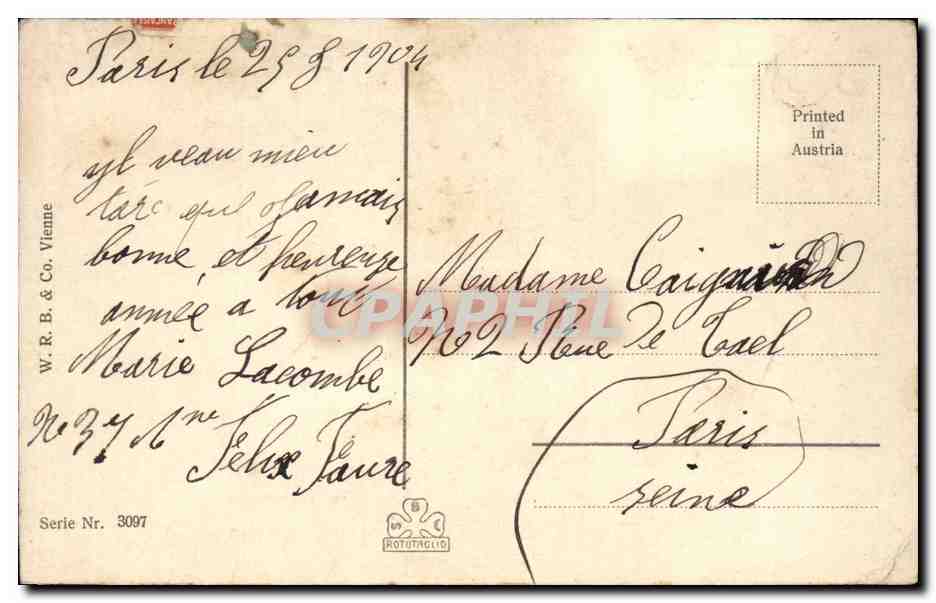 Paris le 25 8 1904
yl veau mieu
tarc que jamais
bonne et heureuse
année a tous
Marie Lacombe
N 37 Ane
Felix Faure
W. R. B. & Co. Vienne
Serie Nr. 3097
S B C
ROTOTAGLIO
CPAPHIL
Printed
in
Austria
Madame
N 2 Rue de Tael
Paris
seine